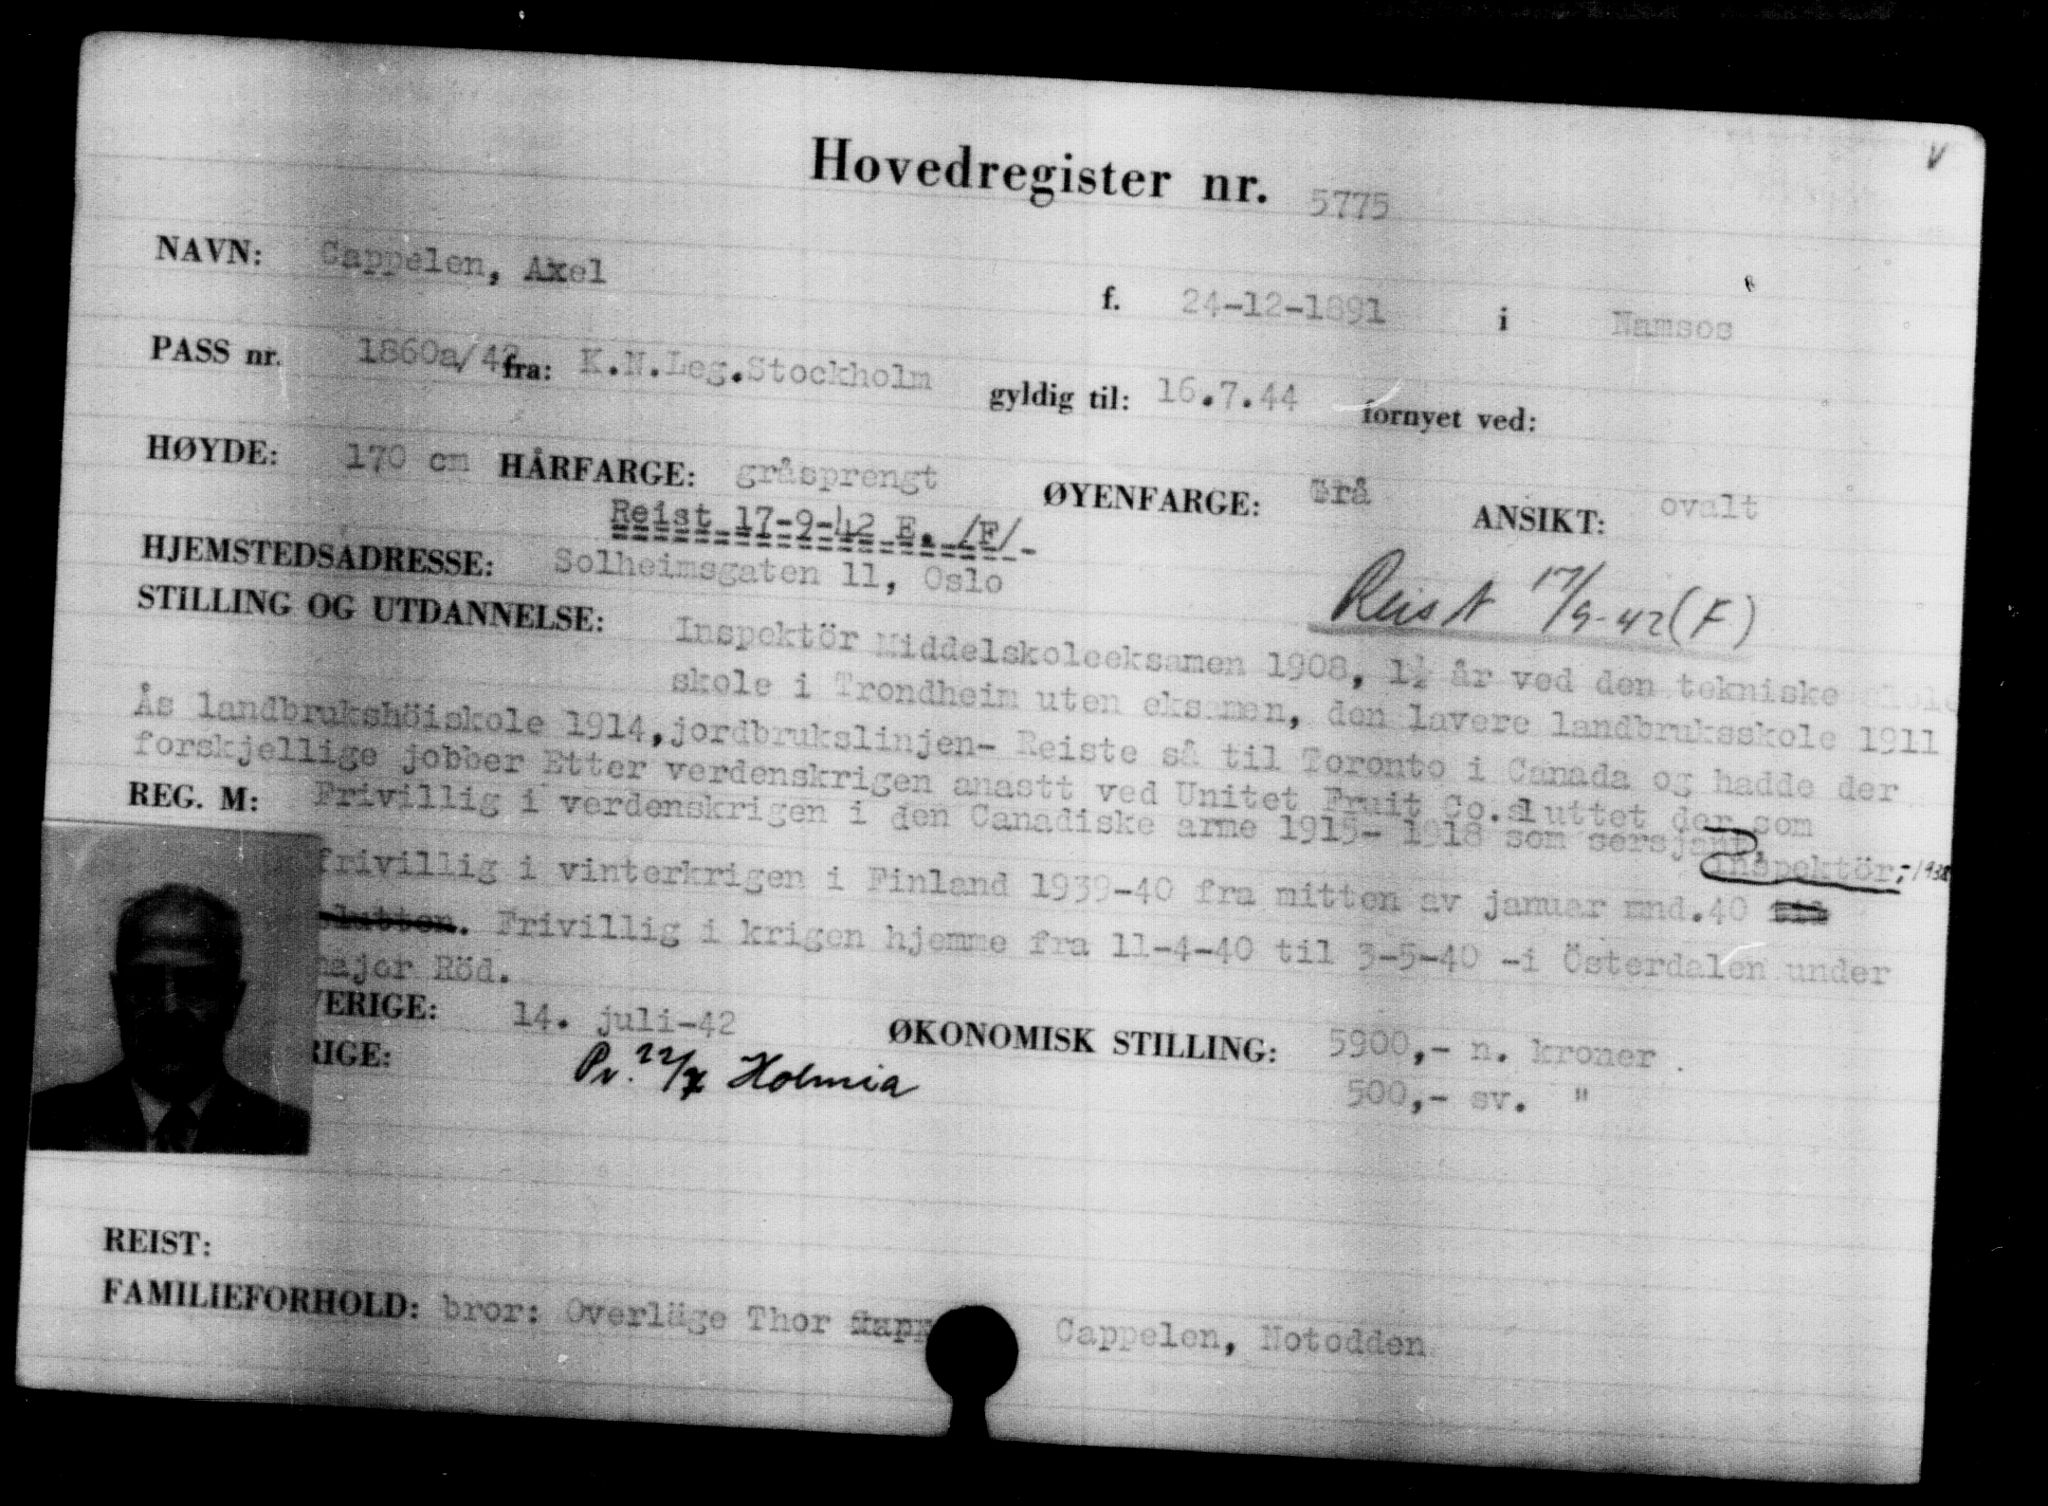 Hovedregister nr. 5775
V
NAVN: Cappelen, Axel f. 24-12-1891 i Namsos
PASS nr. 1860a/42 fra: K.N.Leg.Stockholm gyldig til: 16.7.44 fornyet ved:
HØYDE: 170 cm HÅRFARGE: gråsprengt ØYENFARGE: Grå ANSIKT: ovalt
Reist 17-9-42 E. /F/
HJEMSTEDSADRESSE: Solheimsgaten 11, Oslo
Reist 17/9-42 (F)
STILLING OG UTDANNELSE: Inspektör Middelskoleeksamen 1908, 1½ år ved den tekniske skole
skole i Trondheim uten eksamen, den lavere landbruksskole 1911
Ås landbrukshöiskole 1914, jordbrukslinjen- Reiste så til Toronto i Canada og hadde der
forskjellige jobber Etter verdenskrigen anastt ved Unitet Fruit Co.sluttet der som
inspektör,-1938
REG. M: Frivillig i verdenskrigen i den Canadiske arme 1915- 1918 som sersjant,
frivillig i vinterkrigen i Finland 1939-40 fra mitten av januar mnd.40 til
slutten. Frivillig i krigen hjemme fra 11-4-40 til 3-5-40 -i Österdalen under
major Röd.
VERIGE: 14. juli-42 ØKONOMISK STILLING: 5900,- n. kroner.
RIGE: Pr. 22/7 Holmia 500,- sv. "
REIST:
FAMILIEFORHOLD: bror: Overläge Thor Cappelen, Notodden